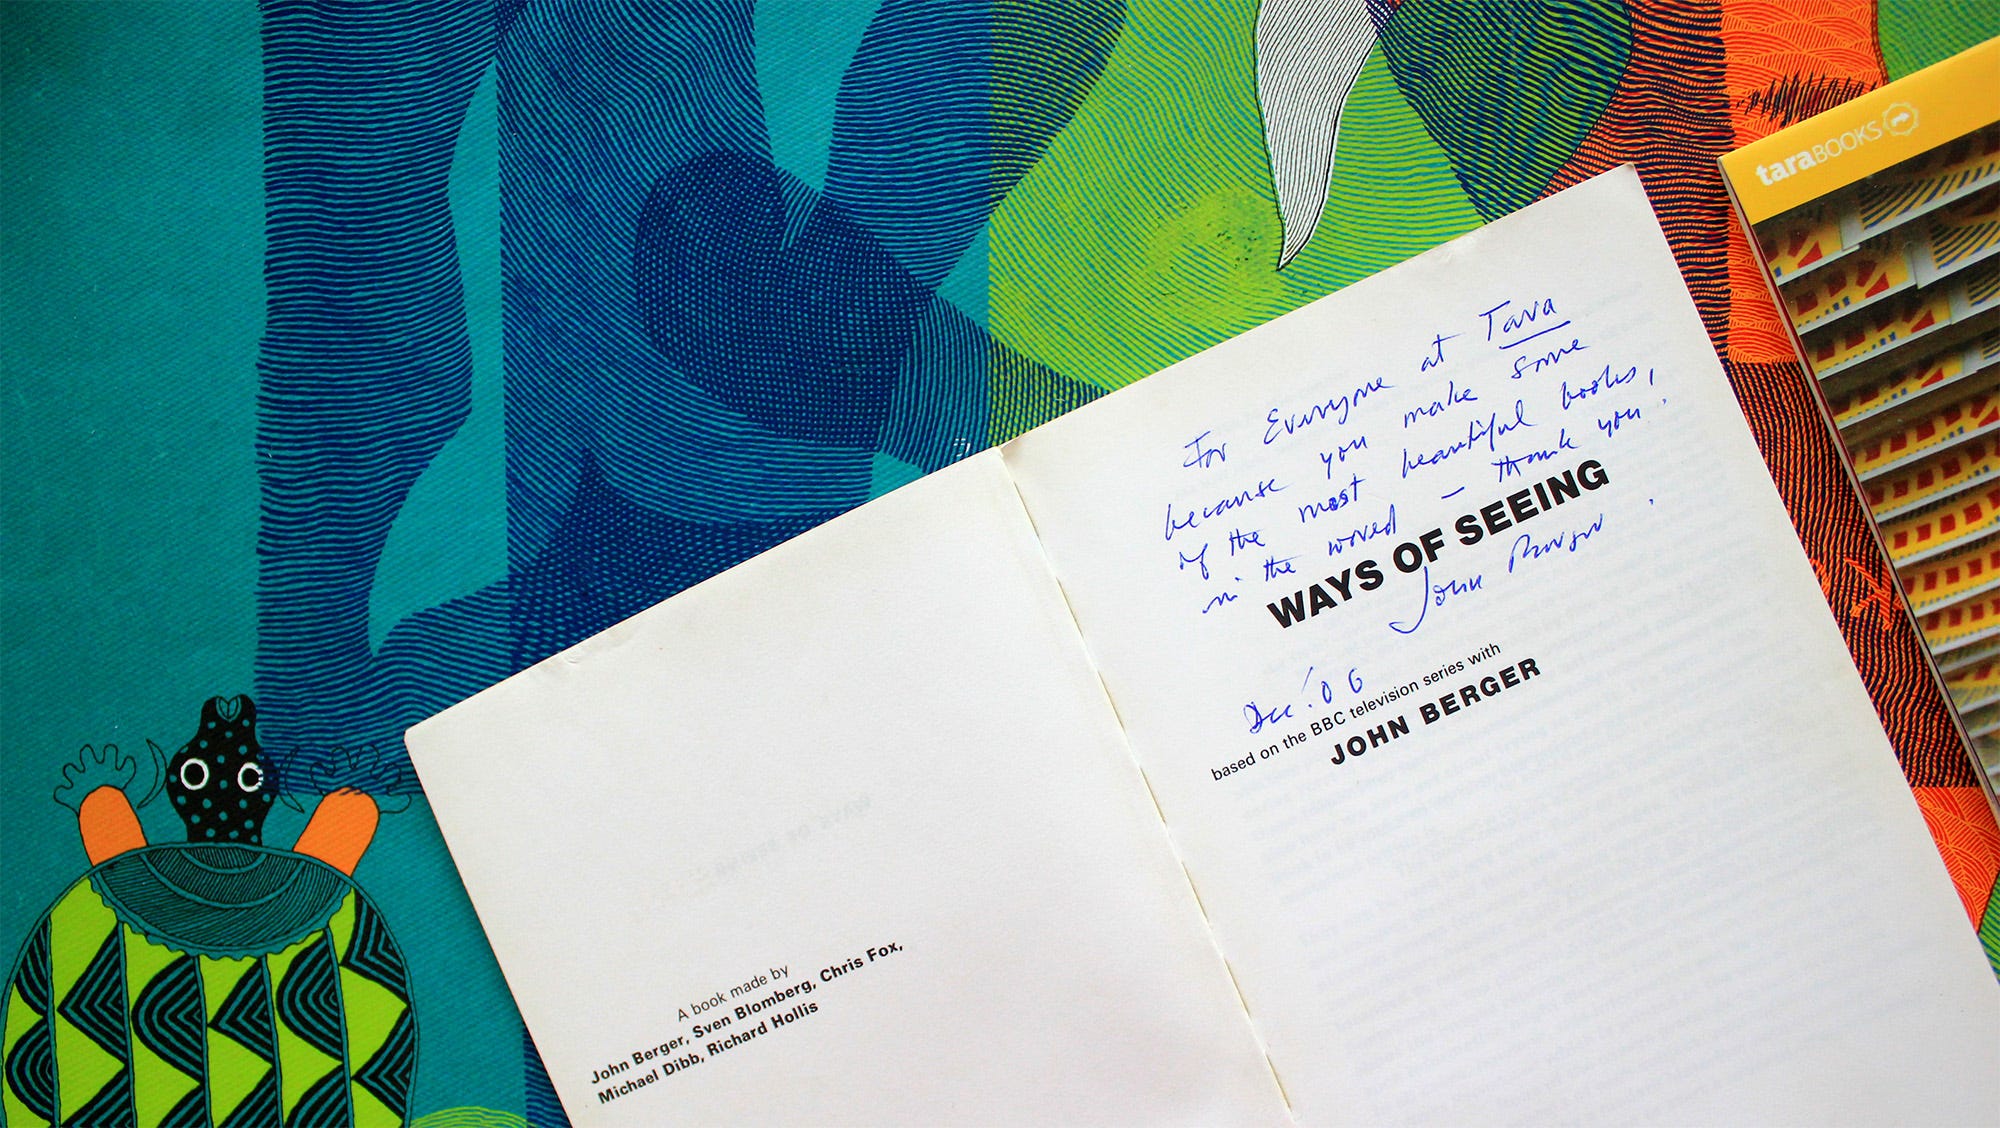 taraBOOKS
For Everyone at Tara
because you make some
of the most beautiful books,
in the world – thank you.
WAYS OF SEEING
John Berger
Dec. '06
based on the BBC television series with
JOHN BERGER
A book made by
John Berger, Sven Blomberg, Chris Fox,
Michael Dibb, Richard Hollis